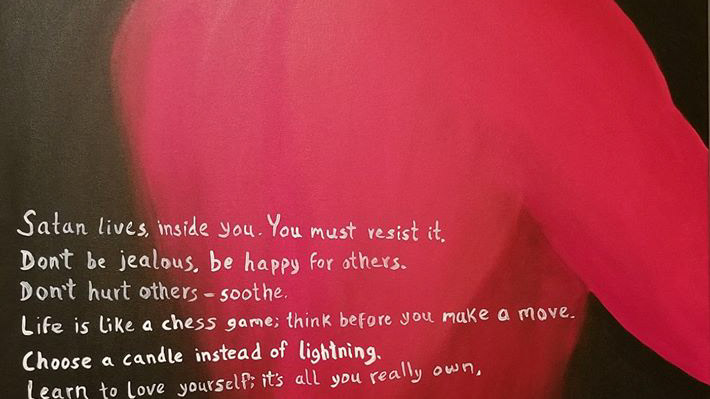 Satan lives, inside you. You must resist it.
Don't be jealous, be happy for others.
Don't hurt others - soothe.
Life is like a chess game; think before you make a move.
Choose a candle instead of lightning.
Learn to love yourself; it's all you really own.